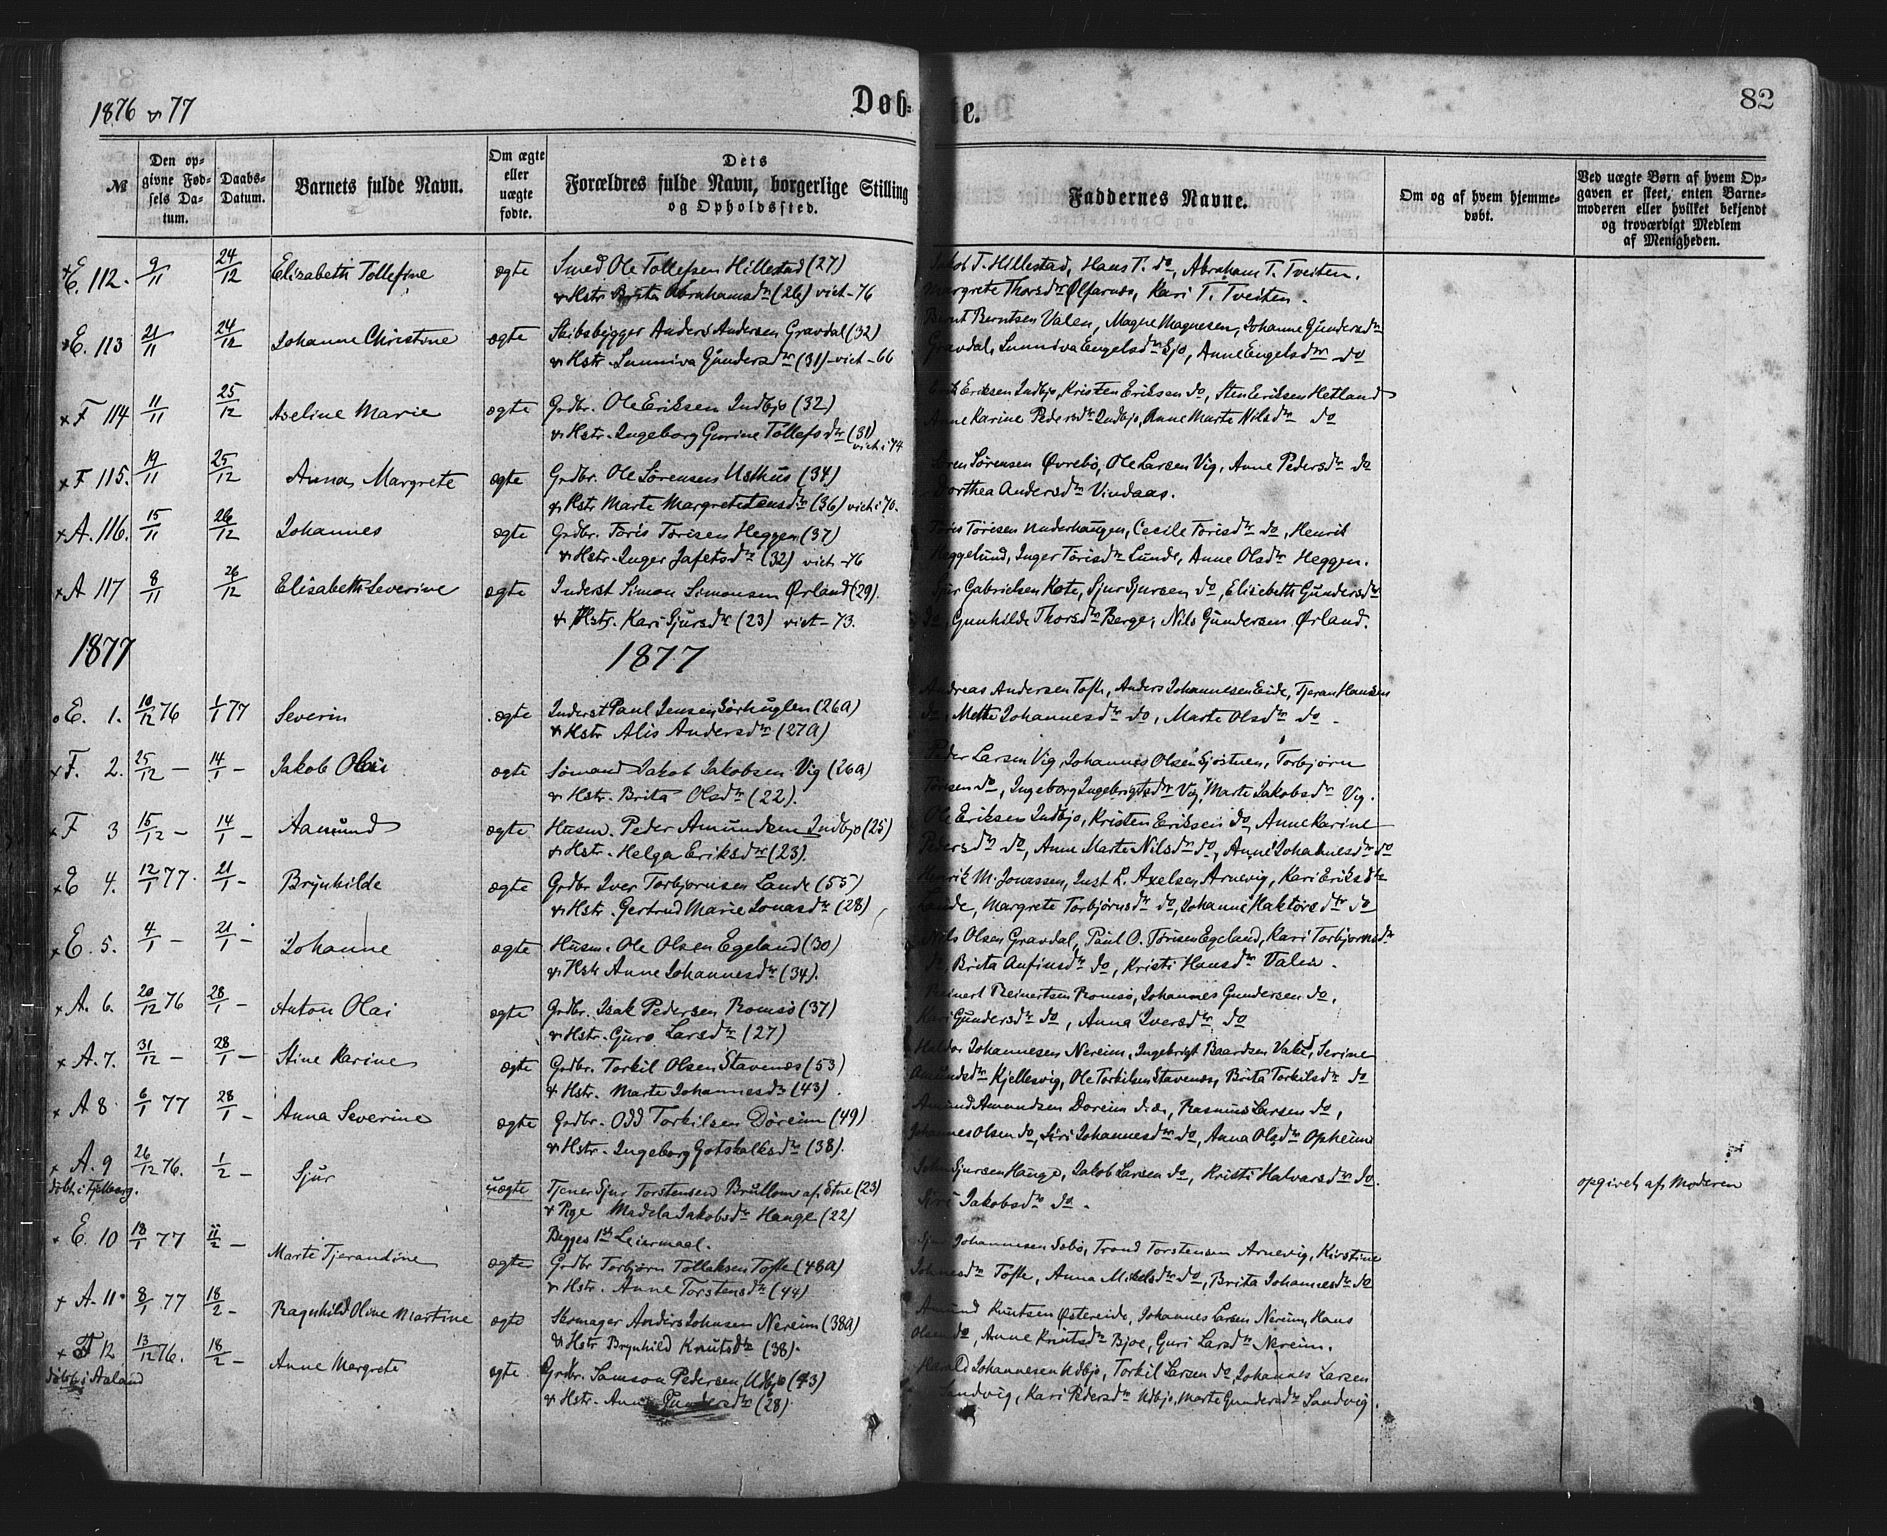 1876 & 77
Døb=
te.
82
№
Den op=
givne Fød=
sels Da=
tum.
Daabs=
Datum.
Barnets fulde Navn.
Om ægte
eller
uægte
fødte.
Dets
Forældres fulde Navn, borgerlige Stilling
og Opholdssted.
Faddernes Navne.
Om og af hvem hjemme=
døbt.
Ved uægte Børn af hvem Op=
gaven er skeet, enten Barne=
moderen eller hvilket bekjendt
og troværdigt Medlem
af Menigheden.
E. 112. 9/11 24/12 Elizabeth Tollefine ægte Smed Ole Tollefsen Hillestad (27)
& Hstr Brita Abrahamsdtr (26) viet - 76
Jakob T. Hillestad, Hans T. do, Abraham T. Tveiten.
Margrete Thorsdtr Ølfarnæs, Kari T. Tveiten.
E. 113 21/11 24/12 Johanne Christine ægte Skibsbygger Anders Andersen Gravdal (32)
& Hstr. Sunniva Gundersdtr (31) - viet - 66
Bernt Berntsen Valen, Magne Magnesen, Johanne Gundersdtr
Gravdal, Sunniva Engelsdtr Sjo, Anne Engelsdtr do
F 114 11/11 25/12 Aseline Marie ægte Grdbr. Ole Eriksen Indbjo (32)
& Hstr. Ingeborg Gurine Tollefsdtr (31)
viet i 74
Erik Eriksen Indbjo, Kristen Eriksen do, Sten Eriksen Hetland
Anne Karine Pedersdtr Indbjo, Anne Marte Nilsdtr do
F 115. 19/11 25/12 Anna Margrete ægte Grdbr. Ole Sørensen Usthus (34)
& Hstr Marte Margrete Jensdtr (36) viet i 70.
Søren Sørensen Øvrebø, Ole Larsen Vig, Anne Pedersdtr do
Dorthea Andersdtr Vindaas.
A. 116. 15/11 26/12 Johannes ægte Grdbr. Tøris Tørisen Heggen (37)
& Hstr. Inger Jafetsdtr (32) viet - 76
Tøris Tørisen Underhaugen, Cecile Tørisdtr do, Henrik
Heggelund, Inger Tørisdtr Lunde, Anne Olsdtr Heggen.
A 117 8/11 26/12 Elisabeth Severine ægte Inderst Simon Simonsen Ørland (29).
& Hstr. Kari Sjursdtr (23) viet - 73.
Sjur Gabrielsen Kote, Sjur Sjursen do, Elisebeth Gundersdtr
do, Gunhilde Thorsdtr Berge, Nils Gundersen Ørland.
1877
1877
E. 1. 10/12 76 1/1 77 Severin ægte Inderst Paul Jensen Sørhuglen (26a)
& Hstr Alis Andersdtr (27a)
Andreas Andersen Tofte, Anders Johannesen Eide, Tjeran Hansen
do, Mette Johannesdtr do, Marte Olsdtr do -
F. 2. 25/12 - 14/1 - Jakob Olai ægte Sømand Jakob Jakobsen Vig (26a)
& Hstr. Brita Olsdtr (22).
Peder Larsen Vig, Johannes Olsen Sjøstuen, Torbjørn
Tørisen do, Ingeborg Ingebrigtsdtr Vig, Marte Jakobsdtr Vig.
F 3 15/12 - 14/1 - Aamund ægte Husm. Peder Amundsen Indbjo (25)
& Hstr. Helga Eriksdtr (23).
Ole Eriksen Indbjo, Kristen Eriksen do, Anne Karine
Pedersdtr do, Anne Marte Nilsdtr do, Anne Johannesdtr do
E 4. 12/1 77. 21/1 - Brynhilde ægte Grdbr Iver Torbjørnsen Lande (55)
& Hstr. Gertrud Marie Jonasdtr (28)
Henrik M. Jonassen, Just L. Axelsen Arnevig, Kari Eriksdtr
Lande, Margrete Torbjørnsdtr do, Johanne Haktorsdtr do
E. 5. 4/1 - 21/1 - Johanne ægte Husm. Ole Olsen Egeland (30)
& Hstr Anne Johannesdtr (34).
Nils Olsen Gravdal, Paul O. Tørisen Egeland, Kari Torbjørnsdtr
do, Brita Anfinsdtr do, Kristi Hansdtr Valen.
A. 6. 20/12 76 28/1 - Anton Olai ægte Grdbr. Isak Pedersen Romsø (37)
& Hstr. Guro Larsdtr (27)
Reinert Reinertsen Romsø, Johannes Gundersen do,
Kari Gundersdtr do, Anna Iversdtr do
A. 7. 31/12 - 28/1 - Stine Karine ægte Grdbr. Torkil Olsen Stavenæs (53)
& Hstr. Marte Johannesdtr (43)
Haldor Johannesen Nereim, Ingebrigt Baardsen Vake, Serine
Amundsdtr Kjellesvig, Ole Torkilsen Stavenæs, Brita Torkilsdtr do
A 8 6/1 77 28/1 - Anna Severine ægte Grdbr. Odd Torkilsen Døreim (49)
& Hstr. Ingeborg Gotskalksdtr (38).
Amund Amundsen Doreim, Rasmus Larsen do,
Johannes Olsen do, Siri Johannesdtr do, Anna Olsdtr Opheim
A. 9 26/12 76. 1/2 - Sjur uægte Tjener Sjur Torstensen Brullom af Etne (23)
døbt i Fjelberg.
& Pige Madela Jakobsdtr Hauge (22)
Begges 1ste Leiermaal.
John Sjursen Hauge, Jakob Larsen do, Kristi Halvarsdtr do.
Siri Jakobsdtr do.
opgivet af Moderen
E. 10 18/1 77 11/2 - Marte Tjerandine ægte Grdbr Torbjørn Tollaksen Tofte (48a)
& Hstr. Anne Torstensdtr (44)
Johannesen Sæbø, Trond Torstensen Arnevig, Kirstine
Johnesdtr Tofte, Anna Mikelsdtr do, Brita Johannesdtr do
A. 11 8/1 77 18/2 - Ragnhild Oline Martine ægte Skrmager Anders Johnsen Nereim (38a)
& Hstr Brynhild Knutsdtr (38).
Amund Knutsen Østereide, Johannes Larsen Nereim, Hans
Olsen do, Anne Knutsdtr Bjoe, Guri Larsdtr Nereim.
F 12 13/12 76. 18/2 - Anne Margrete ægte Grdbr. Samson Pedersen Udbjo (43)
døbt i Aaland
& Hstr. Anna Gundersdtr (28)
Harald Johannesen Udbjo, Torkil Larsen do, Johannes Larsen
Sandvig, Kari Pedersdtr Udbjo, Marte Gundersdtr Sandvig.